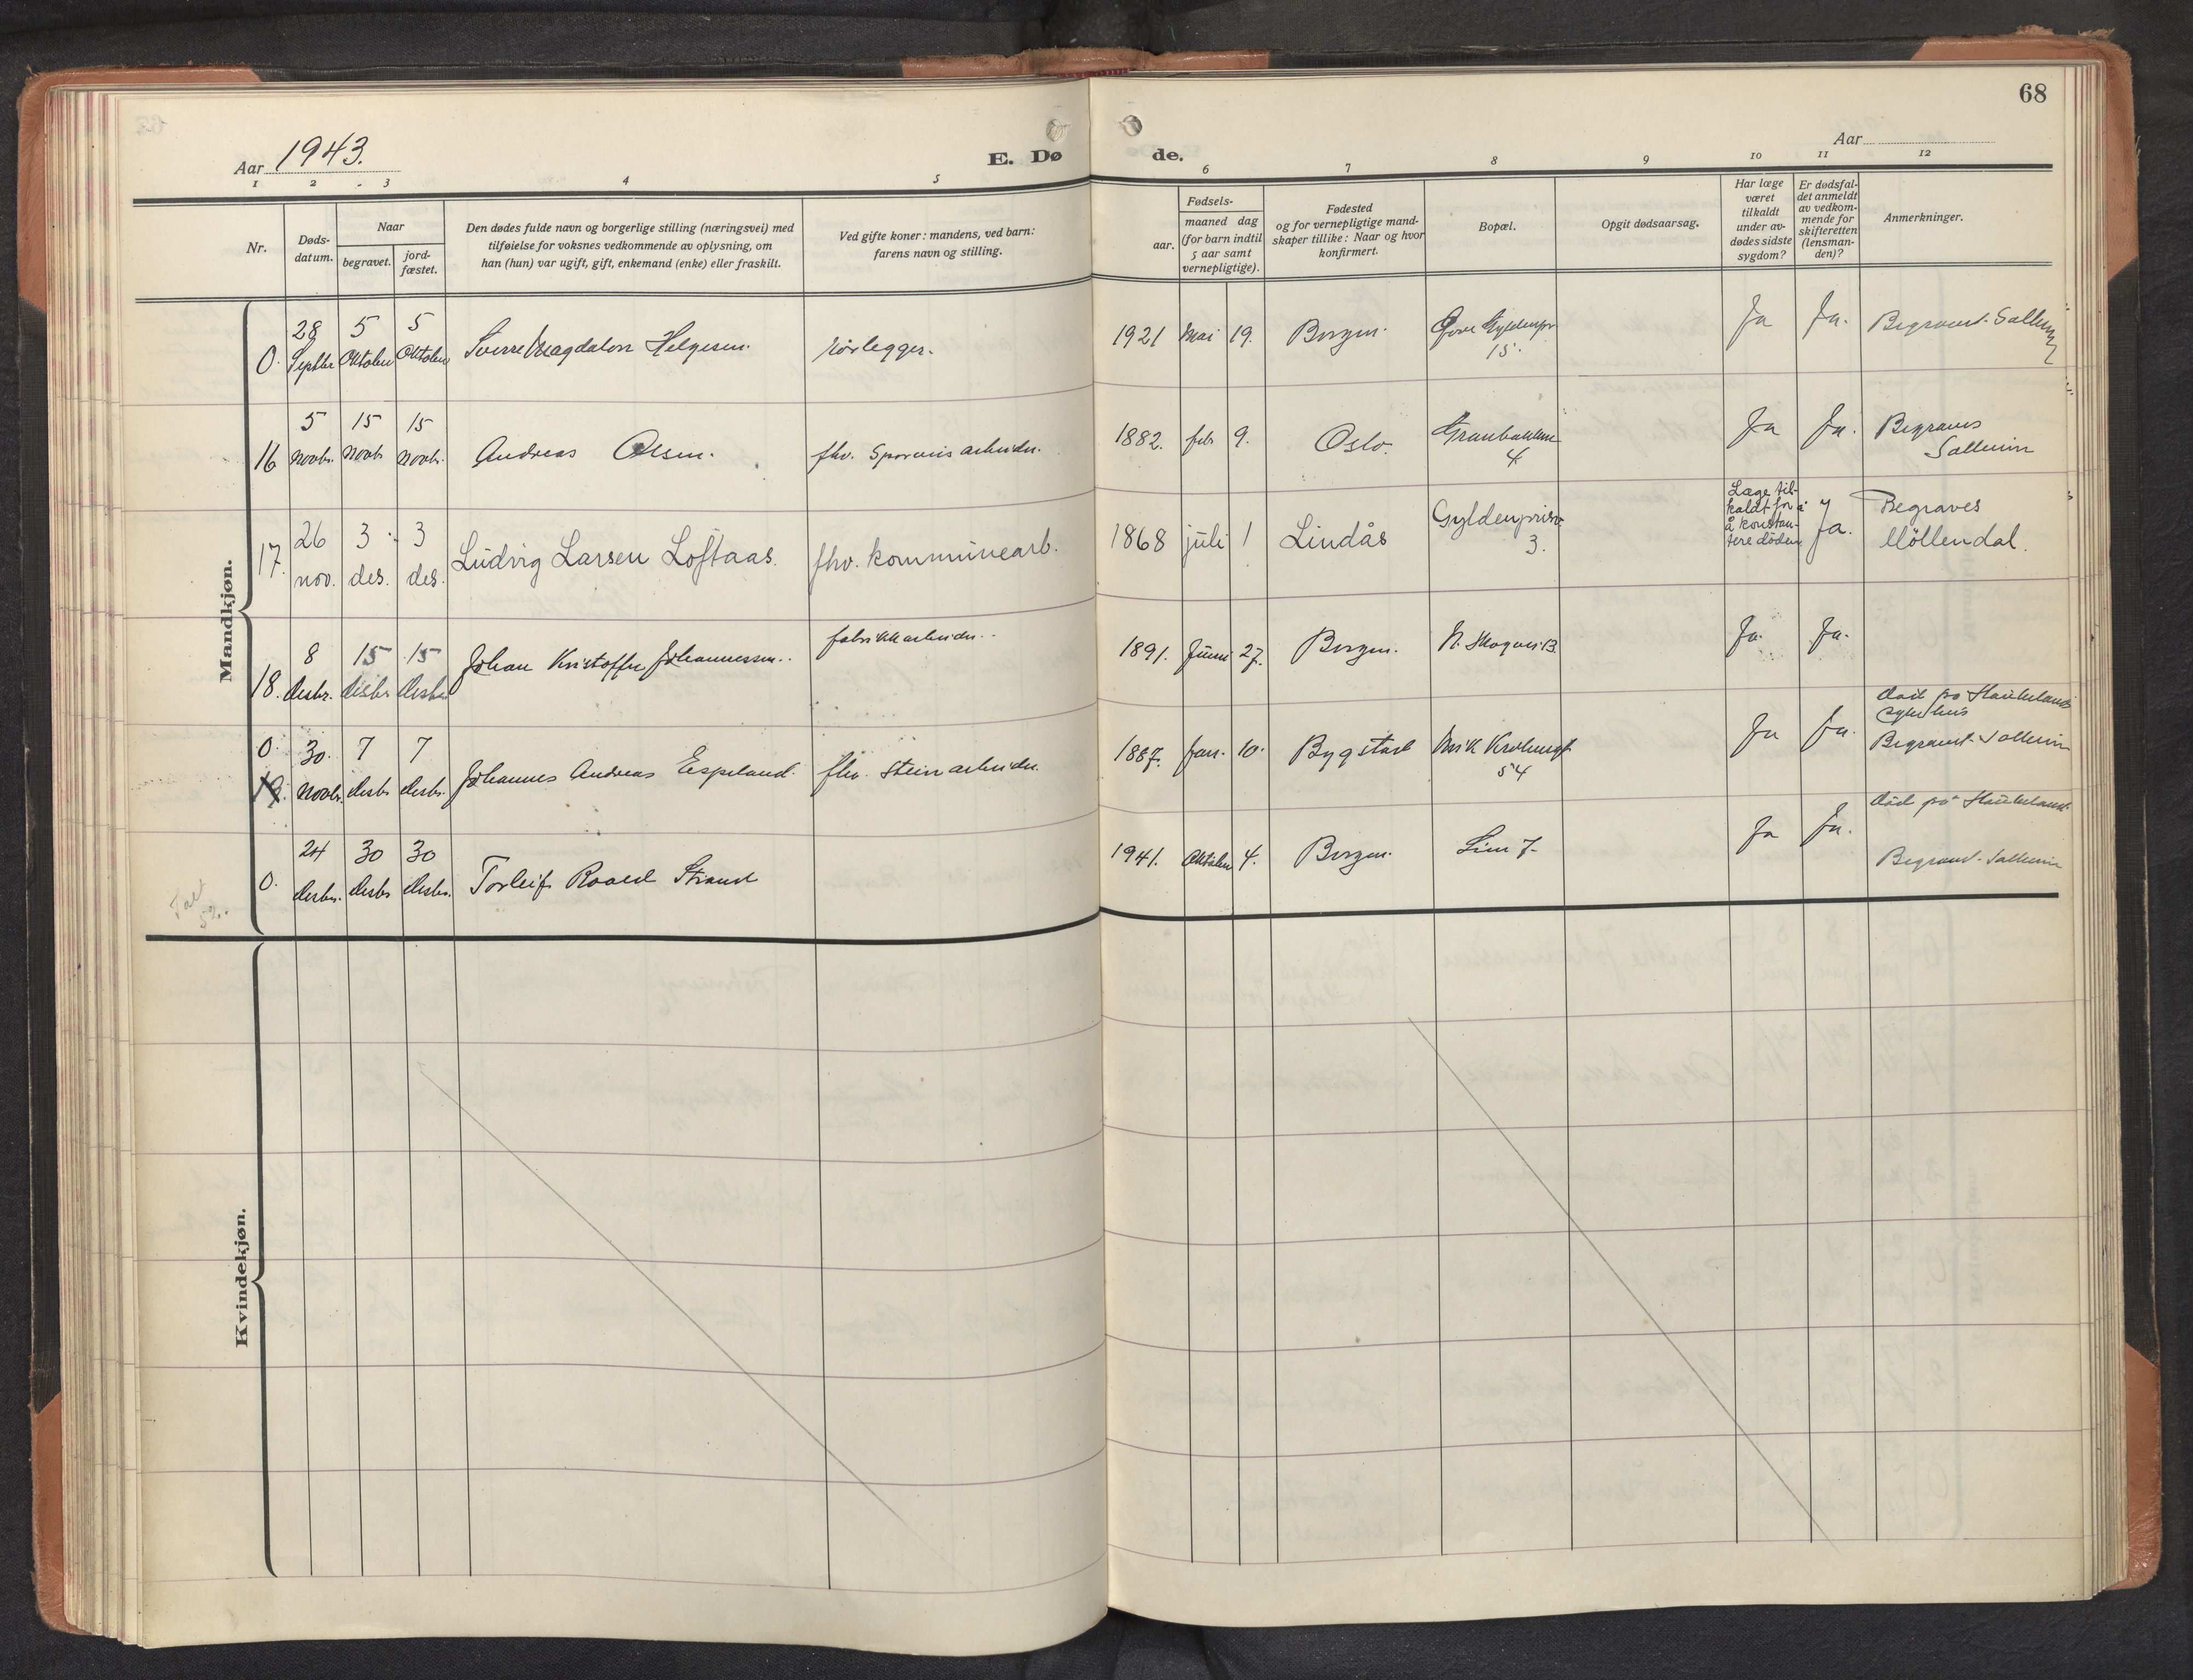 68
Aar 1943.
E. Dø
de.
Aar
1 2 3 4 5 6 7 8 9 10 11 12
Nr.
Døds-
datum.
Naar
begravet.
jord-
fæstet.
Den dødes fulde navn og borgerlige stilling (næringsvei) med
tilføielse for voksnes vedkommende av oplysning, om
han (hun) var ugift, gift, enkemand (enke) eller fraskilt.
Ved gifte koner: mandens, ved barn:
farens navn og stilling.
Fødsels-
aar.
maaned dag
(for barn indtil
5 aar samt
vernepligtige).
Fødested
og for vernepligtige mand-
skaper tillike: Naar og hvor
konfirmert.
Bopæl.
Opgit dødsaarsag.
Har læge
været
tilkaldt
under av-
dødes sidste
sygdom?
Er dødsfal-
det anmeldt
av vedkom-
mende for
skifteretten
(lensman-
den)?
Anmerkninger.
Mandkjøn.
0. 28 Septbr 5 Oktober 5 Oktober Sverre Magdalon Helgesen. rørlegger. 1921 Mai 19. Bergen. Gyldenpr 15. Ja Ja. Begravet. Solheim
16 5 novbr. 15 novbr 15 novbr. Andreas Olsen. fhv. Sporveisarbeider. 1882. feb 9. Oslo. 4 Ja Ja. Begraves
Solheim
17. 26 nov. 3 des. 3 des. Ludvig Larsen Loftaas. fhv. kommunearb. 1868 juli 1 Lindås Gyldenpris
3.
Læge til-
kaldt for
å konsta-
tere døden
Ja. Begraves
Möllendal.
18. 8 desbr. 15 desbr 15 desbr Johan Kristoffer Johannessen. fabrikkarbeider. 1891. Juni 27. Bergen. N. Skogvei 13. Ja. Ja.
0. 19. 30. Novbr. 7 desbr 7 desbr. Johannes Andreas Espeland. fhv. Steinarbeider. 1887. Jan. 10. Bygstad Mik Krohnsgt
54
Ja Ja. död på Haukeland
sykehus
Begravet. Solheim
0. 24 desbr. 30 desbr 30 desbr. Torleif Roald Strand 1941. Oktober 4. Bergen. Lien 7. Ja Ja. död på Haukeland.
Begravet. Solheim
52.
Kvindekjøn.